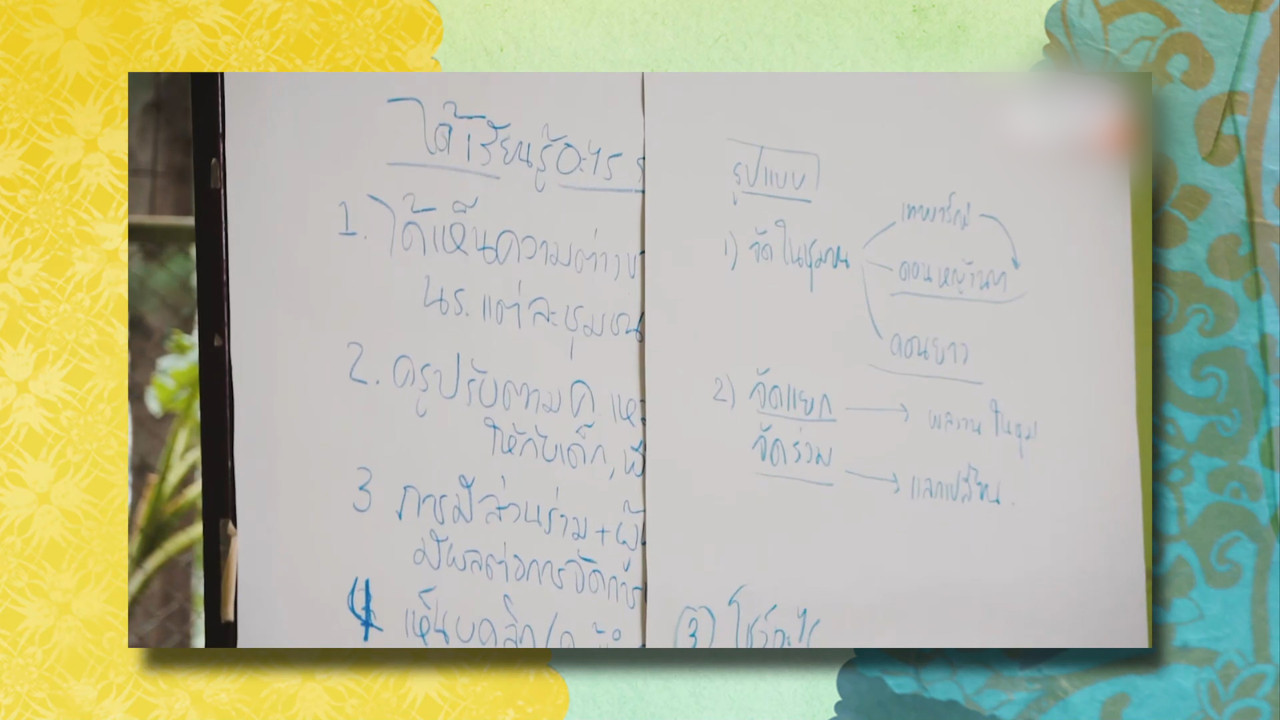 ได้เรียนรู้อะไร
1. ได้เห็นความต่าง
นร. แต่ละชุมชน
2. ครูปรับตาม
ให้กับเด็ก,
3 การมีส่วนร่วม +
มีผลต่อการจัดการ
4 เห็น
รูปแบบ
1) จัดในชุมชน
เทพารักษ์
ดอนหญ้านา
ดอนยาว
2) จัดแยก → ผลงาน ในชุม
จัดร่วม → แลกเปลี่ยน.
3) โชว์อะไร